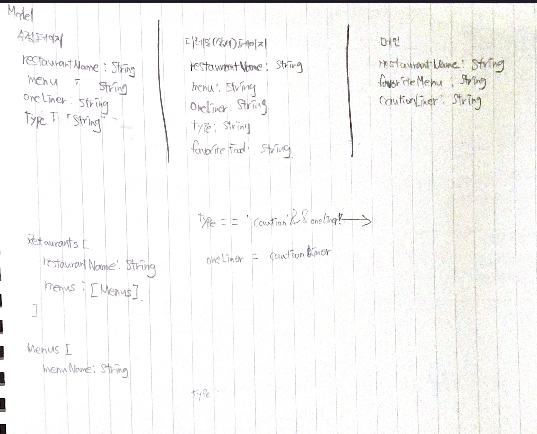 Model
수정페이지
restaurantName : String
menu : String
oneLiner : String
type : "String"
디테일(상세)페이지
restaurantName : String
menu : String
oneLiner : String
type : String
favoriteFood : String
메인
restaurantName : String
favoriteMenu : String
cautionLiner : String
type == 'caution' && oneLiner
oneLiner = cautionLiner
Restaurants [
restaurantName : String
menus : [Menus]
]
Menus [
menuName : String
type